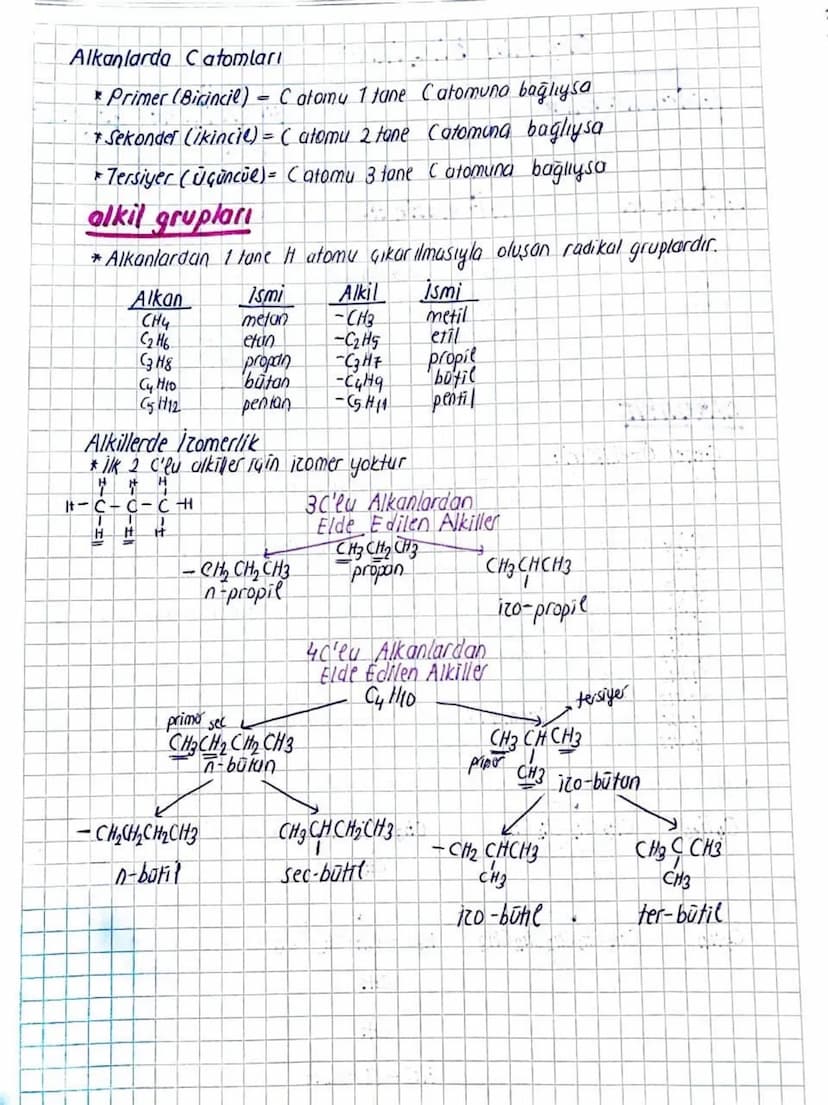 Alkanlarda C atomları
* Primer (Birincil) = C atomu 1 tane C atomuna bağlıysa
* Sekonder (ikincil) = C atomu 2 tane C atomuna bağlıysa
* Tersiyer (Üçüncül) = C atomu 3 tane C atomuna bağlıysa
alkil grupları
* Alkanlardan 1 tane H atomu çıkarılmasıyla oluşan radikal gruplardır.
Alkan İsmi Alkil İsmi
CH4 metan -CH3 metil
C2H6 etan -C2H5 etil
C3H8 propan -C3H7 propil
C4H10 bütan -C4H9 bütil
C5H12 pentan -C5H11 pentil
Alkillerde İzomerlik
* ilk 2 C'lu alkiller için izomer yoktur
H H H
H-C-C-C-H
H H H
3C'lu Alkanlardan
Elde Edilen Alkiller
CH3CH2CH3
propan
-CH2CH2CH3
n-propil
CH3CHCH3
izo-propil
4C'lu Alkanlardan
Elde Edilen Alkiller
C4H10
primer sec
CH3CH2CH2CH3
n-bütan
tersiyer
CH3CHCH3
primer
CH3
izo-bütan
-CH2CH2CH2CH3
n-bütil
CH3CHCH2CH3
sec-bütil
-CH2CHCH3
CH3
izo-bütil
CH3CCH3
CH3
ter-bütil